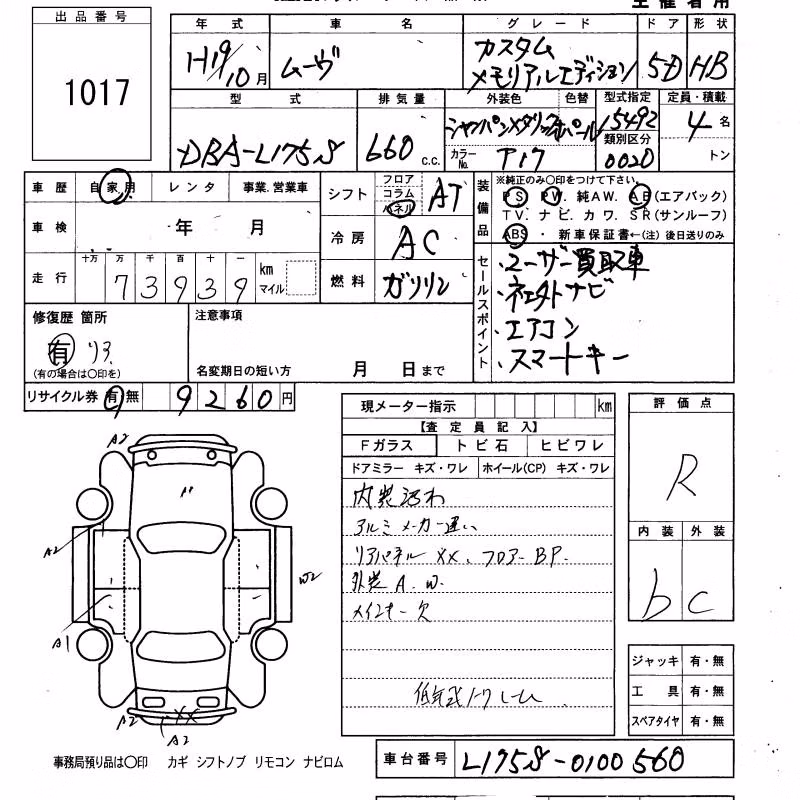 出品番号
1017
年式 車名 グレード ドア 形状
H19/10月 ムーヴ カスタム メモリアルエディション 5D HB
型式 排気量 外装色 色替 型式指定 定員・積載
DBA-L175S 660 c.c. シャンパンメタリックオパール 15492 4名
カラーNo. T17 類別区分 0020 トン
車歴 自家用 レンタ 事業.営業車 シフト フロア コラム パネル AT
装備品 ※純正のみ〇印をつけて下さい。
PS. PW. 純AW. AB(エアバック)
TV. ナビ. カワ. SR(サンルーフ)
ABS・新車保証書←(注)後日送りのみ
車検 年 月 冷房 AC
走行 十万 万 千 百 十 一 km マイル
73939
燃料 ガソリン
セールスポイント
・ユーザー買取車
・ネェクトナビ
・エアコン
・スマートキー
修復歴 箇所 注意事項
有 リア
(有の場合は〇印を) 名変期日の短い方 月 日まで
リサイクル券 有 無 9260円
現メーター指示 km
【査定員記入】
Fガラス トビ石 ヒビワレ
ドアミラー キズ・ワレ ホイール(CP) キズ・ワレ
内装汚れ
アルミメーカー違い
リアパネル XX、フロアーBP.
外装 A. W.
メインキー欠
評価点
R
内装 外装
b C
ジャッキ 有・無
工具 有・無
スペアタイヤ 有・無
A2
A2
W2
A1
A2 XX
A2
事務局預り品は〇印 カギ シフトノブ リモコン ナビロム
車台番号 L175S-0100560